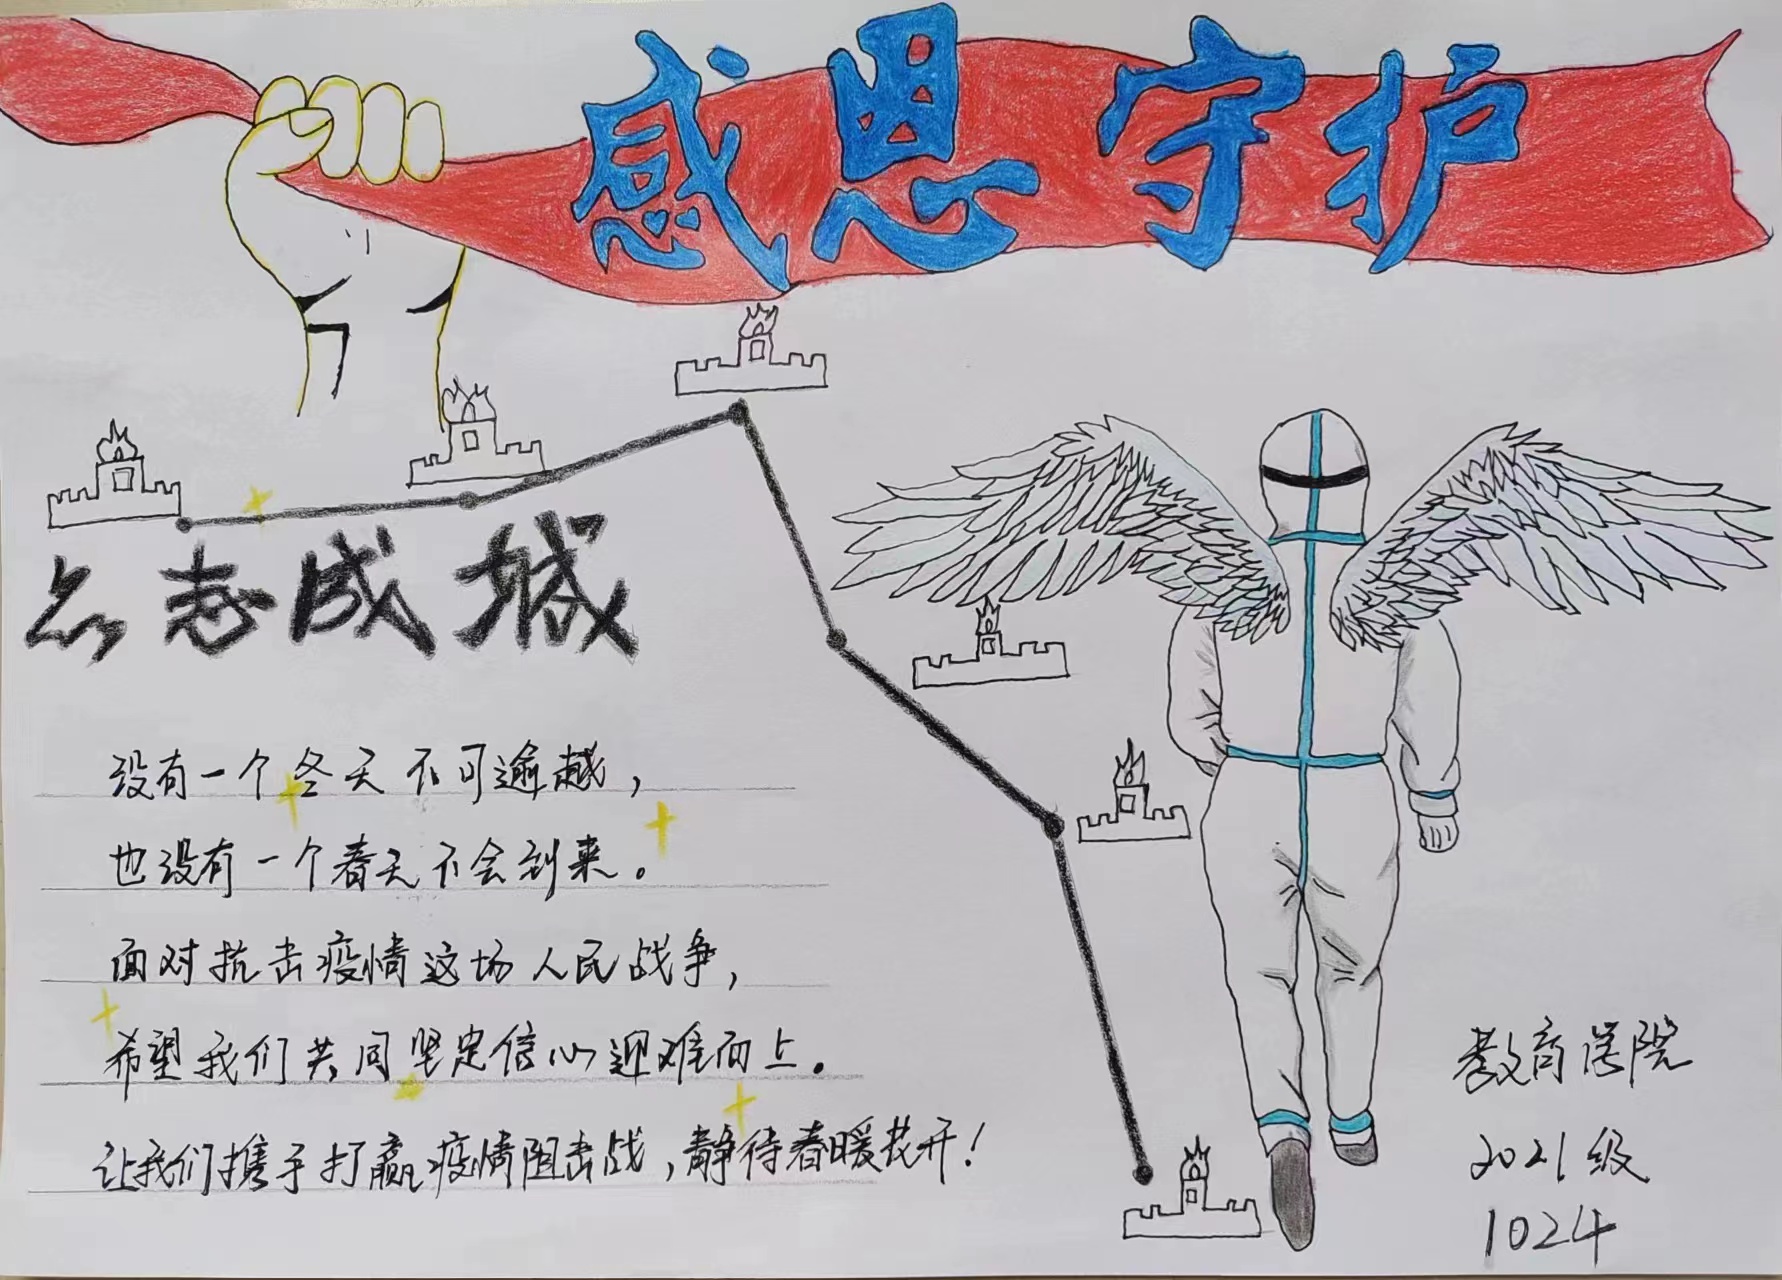 感恩守护
众志成城
没有一个冬天不可逾越，
也没有一个春天不会到来。
面对抗击疫情这场人民战争，
希望我们共同坚定信心迎难而上。
让我们携手打赢疫情阻击战，静待春暖花开！
教育学院
2021级
1024